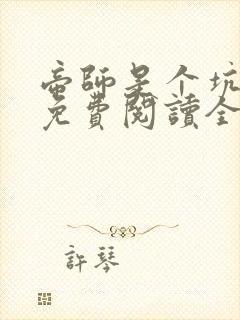 帝師是个坑
免費閱讀全
許琴